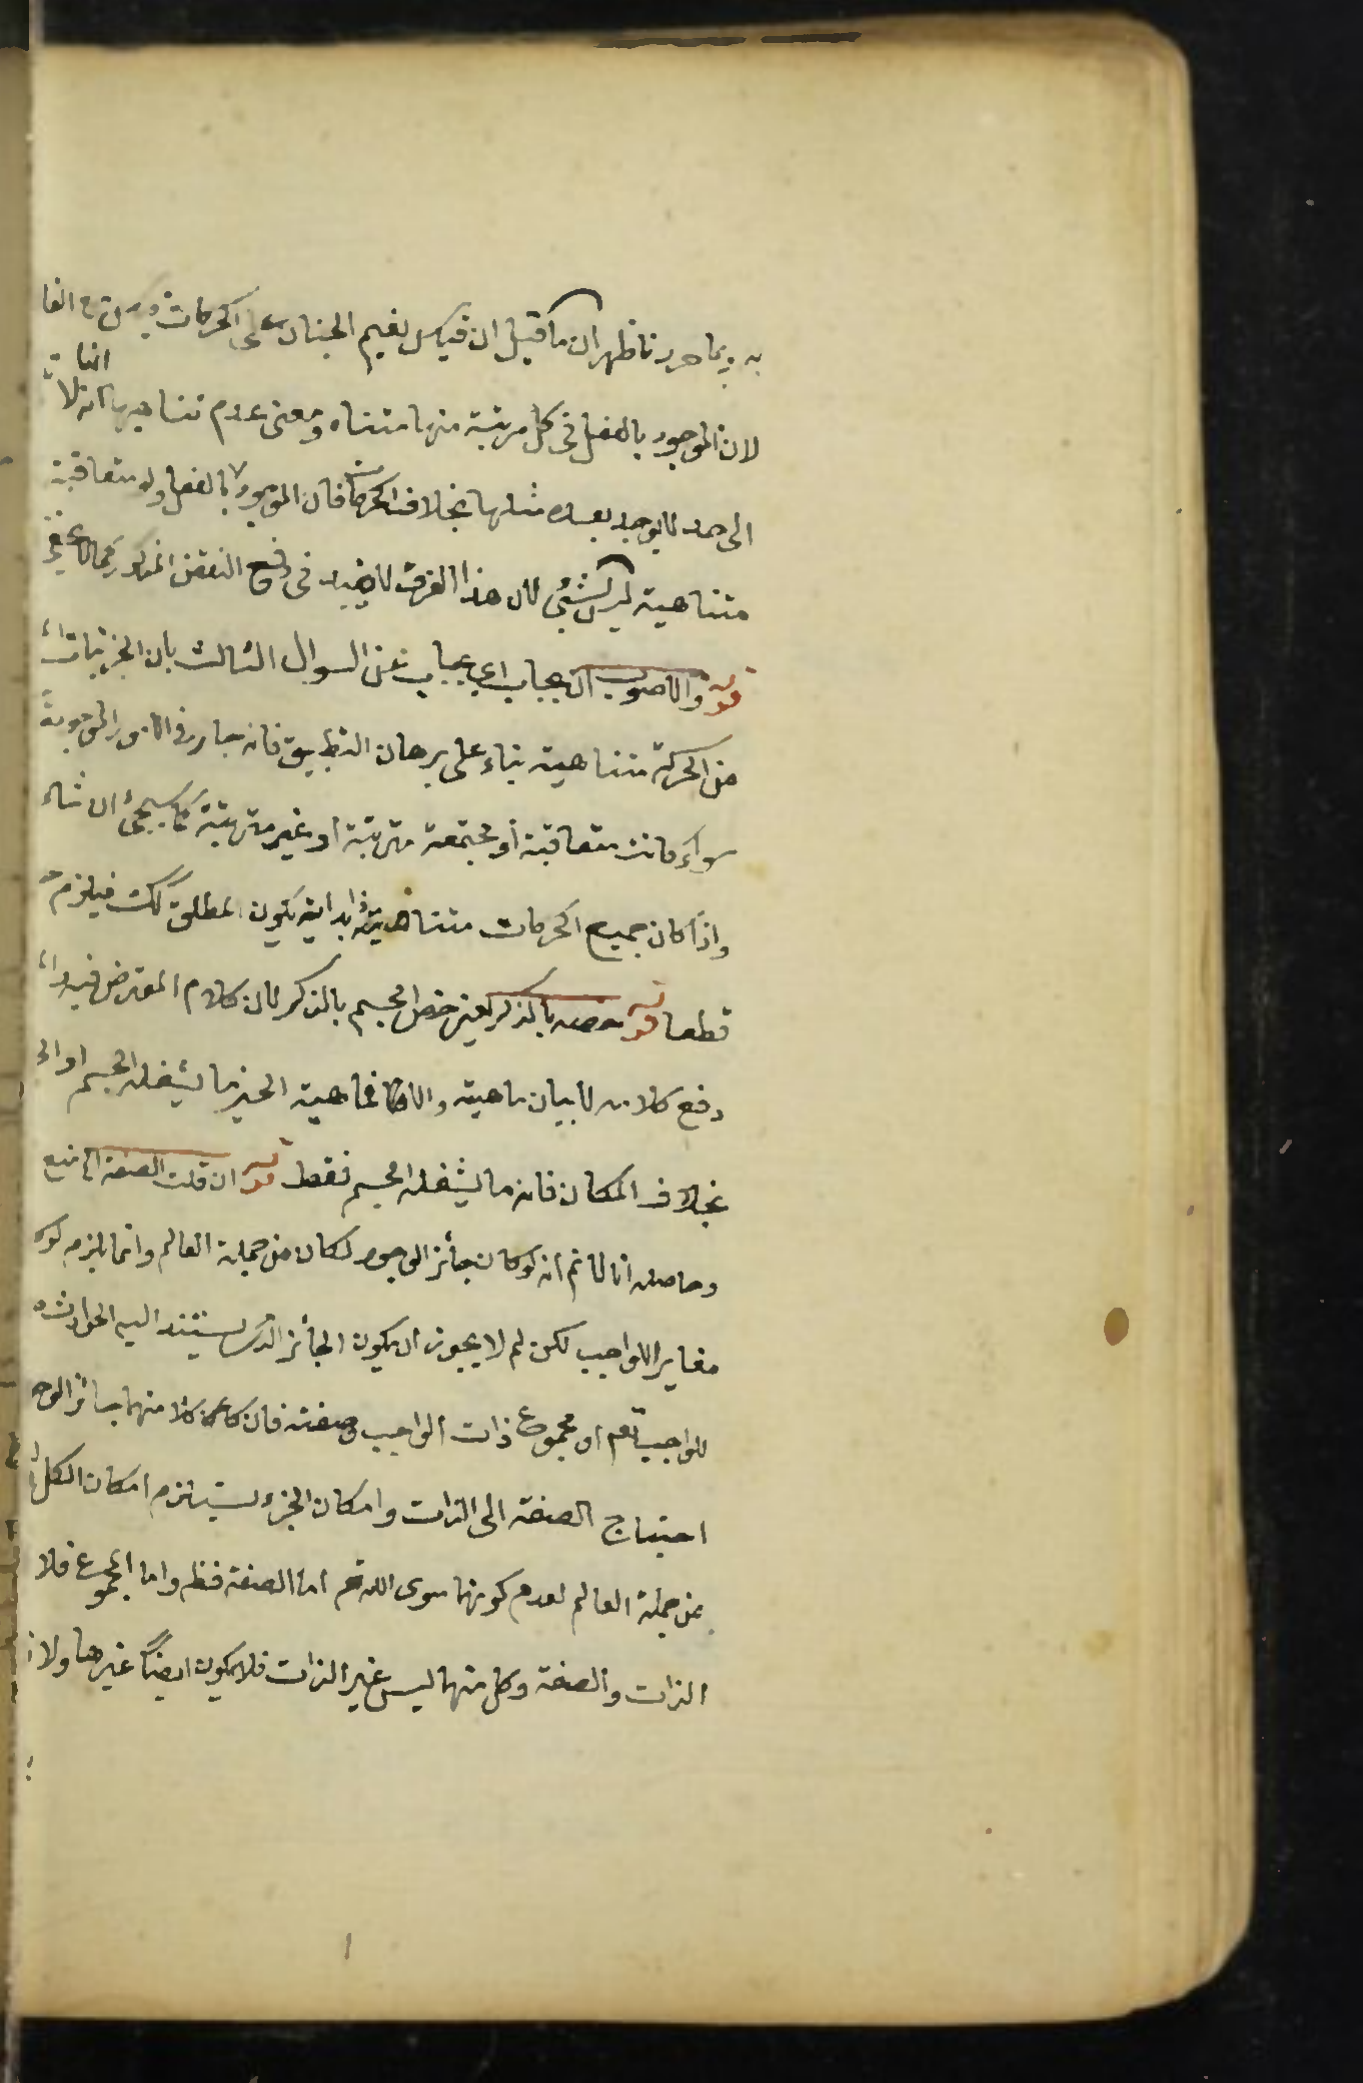 به وبما حررنا ظهر ان ما قيل ان قيس نعيم الجنان على الحركات
لان الموجود بالفعل فى كل مرتبة منها متناه ومعنى عدم تناهيها انه لا
الى حد لا يوجد بعده مثلها بخلاف الحركات فان الموجود بالفعل ولو متعاقبة
متناهية ليس بشئ لان هذا الفرق لا يفيد فى دفع النقض المذكور كما لا يخفى
قوله والاصوب ان يجاب اى يجاب عن السوال الثالث بان الجزئيات
من الحركة متناهية بناء على برهان التطبيق فانه جار فى الامور الموجودة
سواء كانت متعاقبة او مجتمعة مترتبة او غير مترتبة كما سيجئ ان شاء
واذا كان جميع الحركات متناهية ذا بداية يكون المطلق كك فيلزم
قطعا قوله خصه بالذكر يعنى خص الجسم بالذكر لان كلام المعترض فيه
دفع كلامه لا بيان ماهيته والا فماهية الحيز ما يشغله الجسم او
بخلاف المكان فانه ما يشغله الجسم فقط قوله ان قلت الصفة الخ منع
وحاصله انا لا نم انه لو كان جائز الوجود لكان من جملة العالم وانما يلزم لو
مغايرا للواجب لكن لم لا يجوز ان يكون الجائز الذى يستند اليه الحوادث
للواجب تعم او مجموع ذات الواجب وصفته فان كلا منهما جائز
احتياج الصفة الى الذات وامكان الجزء يستلزم امكان الكل
من جملة العالم لعدم كونها سوى الله تعم اما الصفة فظ واما المجموع فلا
الذات والصفة وكل منهما ليس غير الذات فلا يكون ايضا غيرها ولا